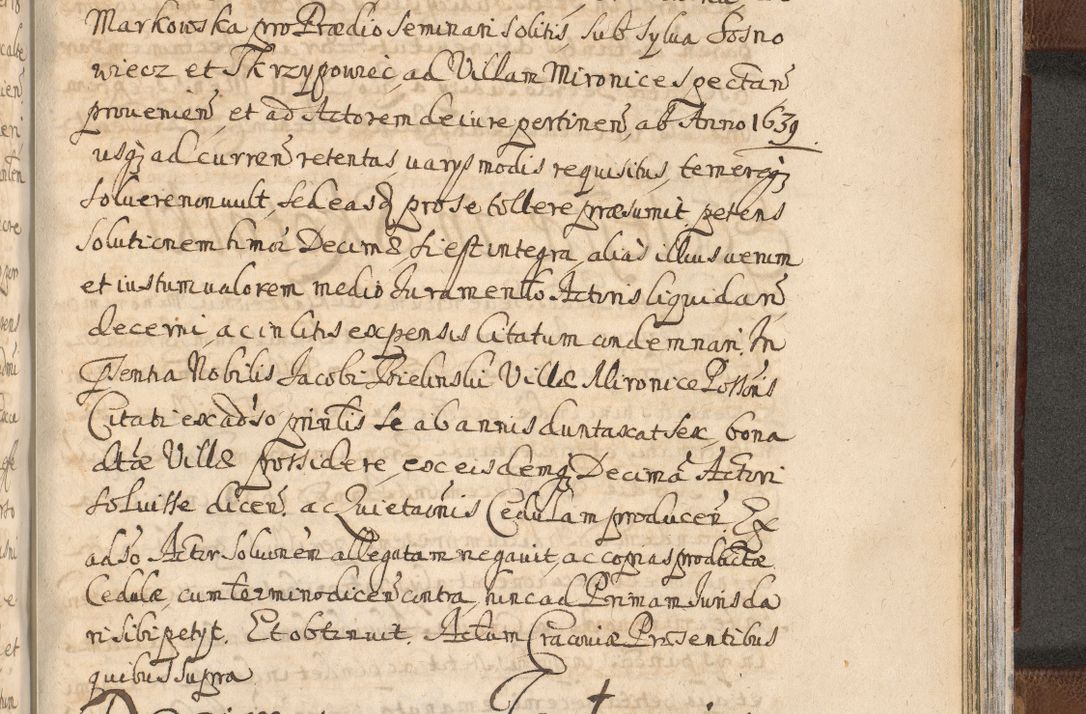 Markowska pro Prædio Seminari solitis, sub Sylva Sosno
wiecz et Skrzypowiec, ad Villam Mironice spectan̄
provenien̄, et ad Actorem de iure pertinen̄, ab Anno 1639.
usq; ad curren̄ retentas, varys modis requisitus, temereq;
solvere non vult, sed easq̄ pro se tollere præsumit petens
Solutionem hmōi Decimæ si est integra, alias illius verum
et iustum valorem medio Juramento Actoris liquidari
decerni, ac in litis expensis Citatum condemnari. In
Pr̄sentia Nobilis Jacobi Bielinski Villæ Mironice Possōris
Citati ex advso prn̄tis se ab annis duntaxat sex, bona
dtæ Villæ possidere, ex eisdemq; Decimā Actori
Solvisse dicen̄. ac Quietaōnis Cedulam producen̄. Ex
adso Actor Soluōnem allegatam negavit, ac copias prodtctæ
Cedulæ, cum termino dicen̄ contra, nunc ad Primam Juris da
ri sibi petyt. Et obtinuit. Actum Cracoviæ Præsentibus
quibus supra